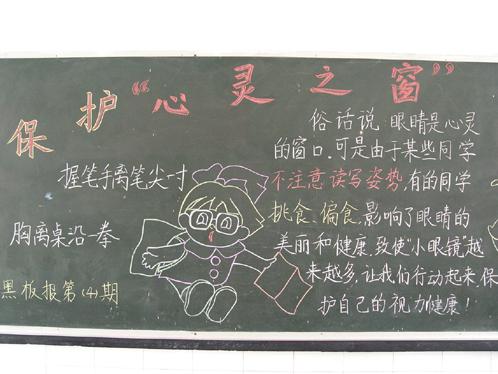 保护“心灵之窗”
握笔手离笔尖一寸
胸离桌沿一拳
黑板报第(4)期
俗话说:眼睛是心灵
的窗口.可是由于某些同学
不注意读写姿势,有的同学
挑食、偏食,影响了眼睛的
美丽和健康,致使“小眼镜”越
来越多,让我们行动起来保
护自己的视力健康!